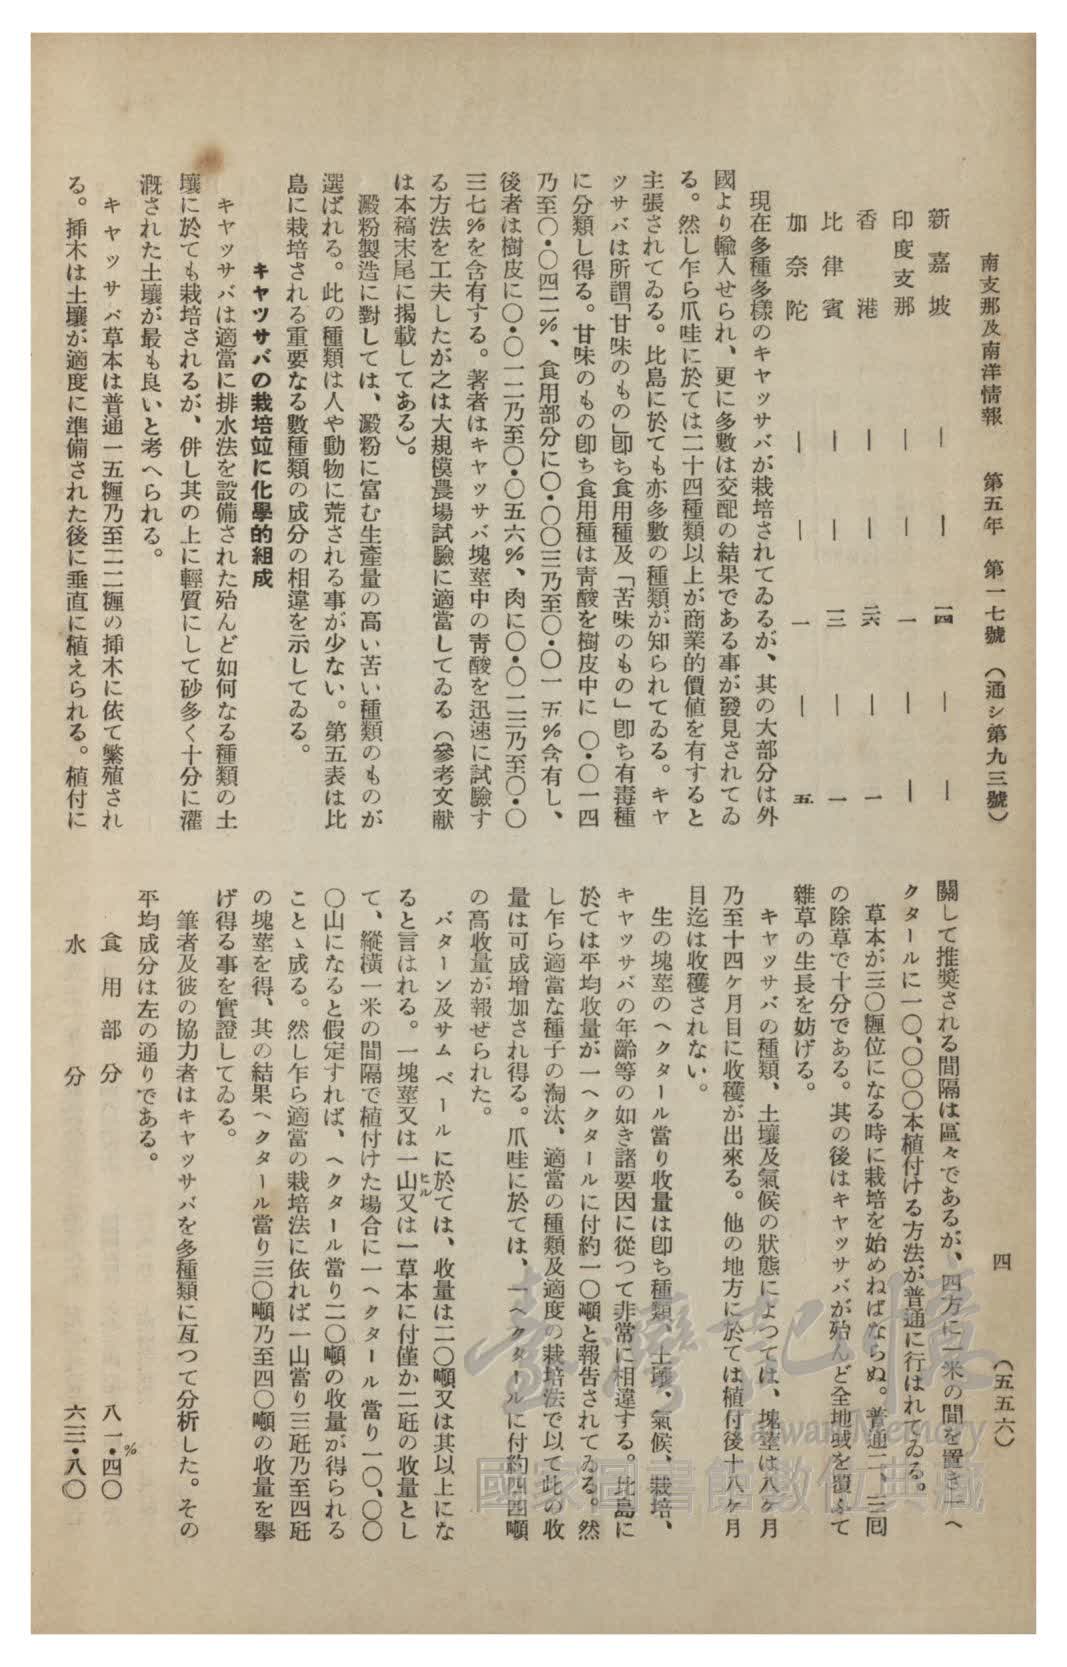 南支那及南洋情報　第五年　第一七號　（通シ第九三號）
四　（五五六）
新嘉坡　｜　｜　一四　｜　｜
印度支那　｜　｜　一　｜　｜
香港　｜　｜　二六　｜　一
比律賓　｜　｜　三　｜　一
加奈陀　｜　｜　一　｜　五
現在多種多樣のキャッサバが栽培されてゐるが、其の大部分は外
國より輸入せられ、更に多數は交配の結果である事が發見されてゐ
る。然し乍ら爪哇に於ては二十四種類以上が商業的價値を有すると
主張されてゐる。比島に於ても亦多數の種類が知られてゐる。キャ
ッサバは所謂「甘味のもの」卽ち食用種及「苦味のもの」卽ち有毒種
に分類し得る。甘味のもの卽ち食用種は靑酸を樹皮中に〇・〇一四
乃至〇・〇四二％、食用部分に〇・〇〇三乃至〇・〇一五％含有し、
後者は樹皮に〇・〇一二乃至〇・〇五六％、肉に〇・〇一三乃至〇・〇
三七％を含有する。著者はキャッサバ塊莖中の靑酸を迅速に試驗す
る方法を工夫したが之は大規模農場試驗に適當してゐる（參考文献
は本稿末尾に揭載してある）。
澱粉製造に對しては、澱粉に富む生產量の高い苦い種類のものが
選ばれる。此の種類は人や動物に荒される事が少ない。第五表は比
島に栽培される重要なる數種類の成分の相違を示してゐる。
キャツサバの栽培竝に化學的組成
キャッサバは適當に排水法を設備された殆んど如何なる種類の土
壤に於ても栽培されるが、併し其の上に輕質にして砂多く十分に灌
漑された土壤が最も良いと考へられる。
キャッサバ草本は普通一五糎乃至二二糎の揷木に依て繁殖され
る。揷木は土壤が適度に準備された後に垂直に植えられる。植付に
關して推奬される間隔は區々であるが、四方に一米の間を置き一ヘ
クタールに一〇、〇〇〇本植付ける方法が普通に行はれてゐる。
草本が三〇糎位になる時に栽培を始めねばならぬ。普通二、三囘
の除草で十分である。其の後はキャッサバが殆んど全地域を覆ふて
雜草の生長を妨げる。
キャッサバの種類、土壤及氣候の狀態によつては、塊莖は八ヶ月
乃至十四ヶ月目に收穫が出來る。他の地方に於ては植付後十八ヶ月
目迄は收穫されない。
生の塊莖のヘクタール當り收量は卽ち種類、土壤、氣候、栽培、
キャッサバの年齡等の如き諸要因に從つて非常に相違する。比島に
於ては平均收量が一ヘクタールに付約一〇噸と報告されてゐる。然
し乍ら適當な種子の淘汰、適當の種類及適度の栽培法で以て此の收
量は可成增加され得る。爪哇に於ては、一ヘクタールに付約四四噸
の高收量が報せられた。
バターン及サムベールに於ては、收量は二〇噸又は其以上にな
ると言はれる。一塊莖又は一山ヒル又は一草本に付僅か二瓩の收量とし
て、縱橫一米の間隔で植付けた場合に一ヘクタール當り一〇、〇〇
〇山になると假定すれば、ヘクタール當り二〇噸の收量が得られる
ことゝ成る。然し乍ら適當の栽培法に依れば一山當り三瓩乃至四瓩
の塊莖を得、其の結果ヘクタール當り三〇噸乃至四〇噸の收量を擧
げ得る事を實證してゐる。
筆者及彼の協力者はキャッサバを多種類に亙つて分析した。その
平均成分は左の通りである。
食用部分　八一・四〇％
水分　六二・八〇
臺灣記憶
Taiwan Memory
國家圖書館數位典藏